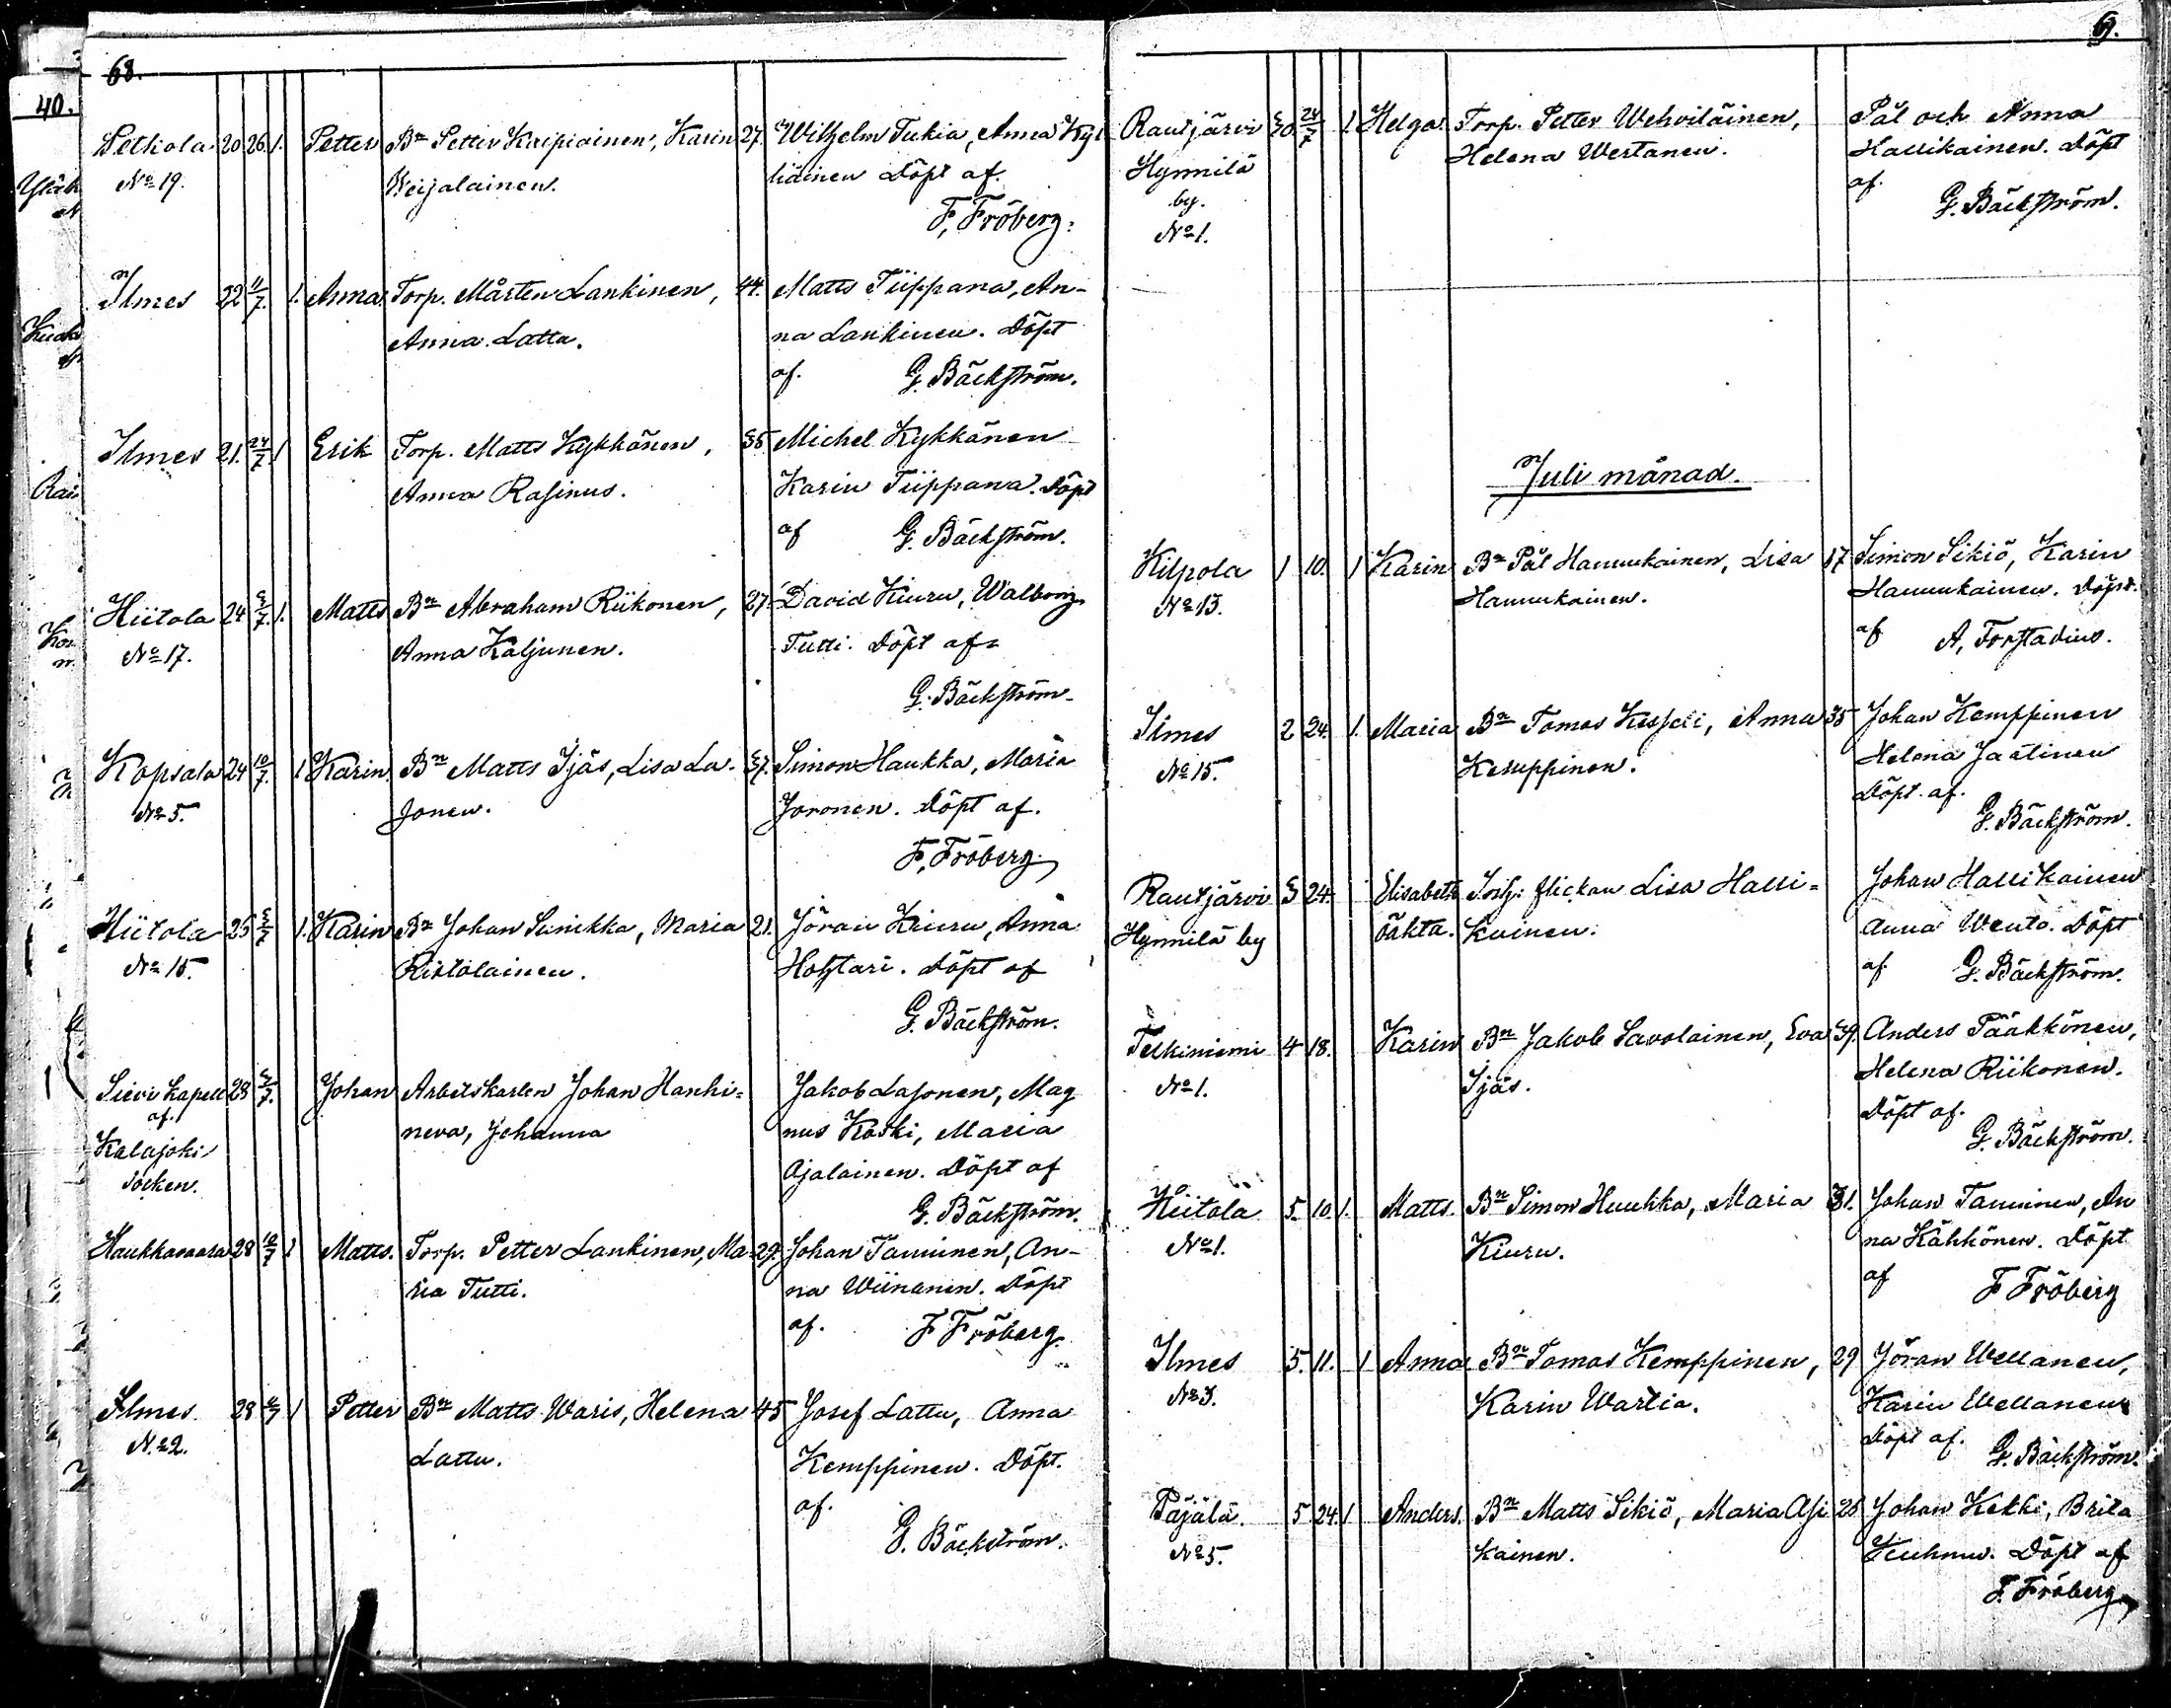 68.
Petkola 20 26 1. Petter Bn Petter Karpiainen, Karin 27. Wilhelm Tukia, Anna Kyl-
No 19. Weijalainen. liäinen Döpt af.
F, Fröberg.
Ilmes 22 11/7. 1. Anna Torp. Mårten Lankinen, 44. Matts Tiippana, An-
Anna Lattu. na Lankinen. Döpt
af. G. Bäckström.
Ilmes 21. 24/7. 1 Erik Torp. Matts Kykkänen, 35 Michel Kykkänen
Anna Rasinus. Karin Tiippana. Döpt
af G. Bäckström.
Hiitola 24 3/7. 1. Matts Bn Abraham Riikonen, 27. David Kiuru, Walborg
No 17. Anna Kaljunen. Tutti. Döpt af
G. Bäckström
Kopsala 24 10/7. 1 Karin. Bn Matts Ijäs, Lisa La- 37. Simon Haukka, Maria
No 5. Jonen. Joronen. Döpt af.
F, Fröberg
Hiitola 25 3/7 1. Karin Bn Johan Sunikka, Maria 21. Jöran Kiuru, Anna
No 15. Ristolainen. Hohtari. Döpt af
G. Bäckström.
Sievi Kapell 28 3/7. Johan Arbetskarlen Johan Hanhi= Jakob Lasonen, Mag
af. neva, Johanna nus Koski, Maria
Kalajoki Ojalainen. Döpt af
socken. G. Bäckström.
Haukkavaara 28 10/7 1 Matts. Torp. Petter Lankinen, Ma- 29. Johan Tanninen, An-
ria Tutti. na Wiinanen. Döpt
af. F Fröberg.
Ilmes 28 1 Petter Bn Matts Waris, Helena 45 Josef Lattu, Anna
No 2. Lattu. Kemppinen. Döpt.
af.
G. Bäckström.
40.
69.
Rautjärvi 30. 24/7 1. Helga Torp. Petter Wehviläinen, Pål och Anna
Hynnilä Helena Wertanen. Hallikainen. Döpt
by. af.
No 1. G. Bäckström.
Juli månad.
Kilpola 1 10. 1 Karin Bn Pål Hannukainen, Lisa 17 Simon Sikiö, Karin
No 13. Hannukainen. Hannukainen. Döpt.
af A, Forstadius.
Ilmes 2 24. 1. Maria Bn Tomas Kesseli, Anna 35 Johan Kemppinen
No 15. Kemppinen. Helena Jaatinen
Döpt af.
G. Bäckström.
Rautjärvi 3 24. Elisabeth flickan Lisa Halli= Johan Hallikainen
Hynnilä by oäkta. kainen. Anna Wento. Döpt
af. G. Bäckström.
Telkiniemi 4 18. Karin Bn Jakob Savolainen, Eva 39. Anders Pääkkönen,
No 1. Ijäs. Helena Riikonen.
Döpt af.
G. Bäckström.
Hiitola 5. 10. 1. Matts. Bn Simon Huuhka, Maria 31. Johan Tanninen, An
No 1. Kiuru. na Kähkönen. Döpt
af F Fröberg
Ilmes 5. 11. 1 Anna Bn Tomas Kemppinen, 29 Jöran Wellanen,
No 3. Karin Wartia. Karin Wellanen
Döpt af. G. Bäckström.
Päjälä. 5 24. 1 Anders. Bn Matts Sikiö, Maria Asi 25 Johan Kekki, Brita
No 5. kainen. Kuhmu. Döpt af
F. Fröberg